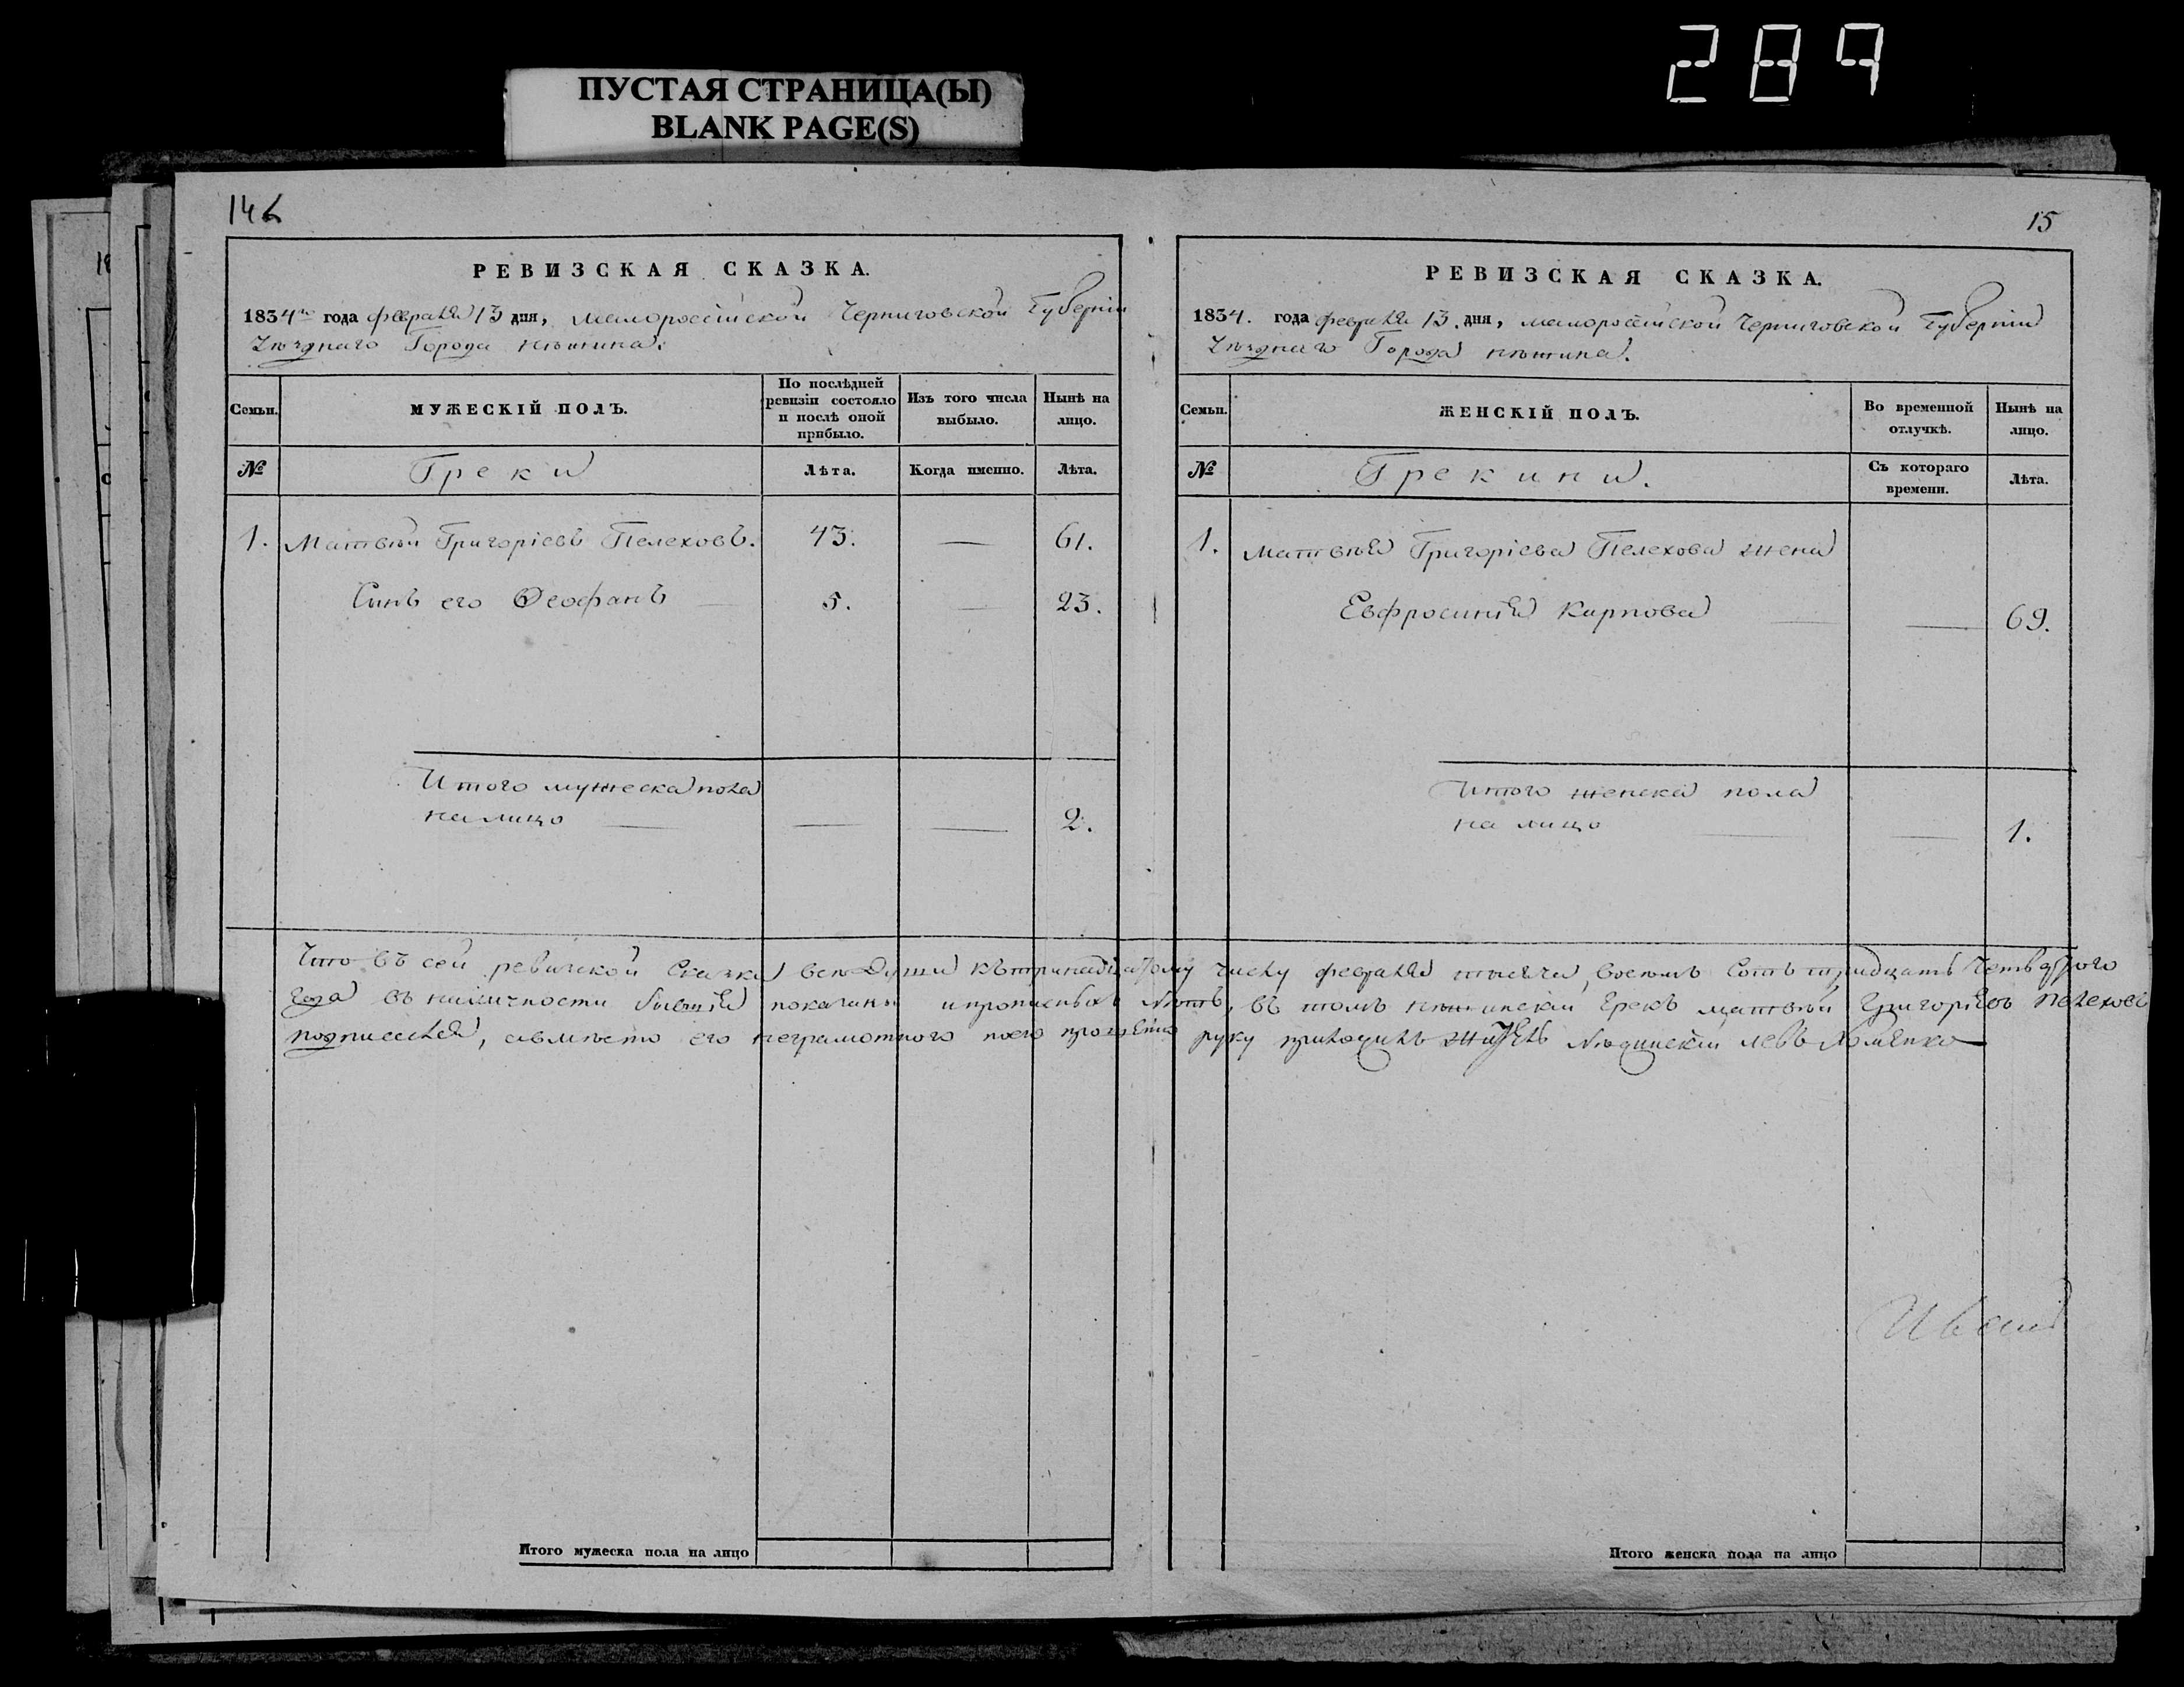 289
ПУСТАЯ СТРАНИЦА(Ы)
BLANK PAGE(S)
РЕВИЗСКАЯ СКАЗКА.
1834го года февраля 13 дня, малороссійской Черниговской Губерніи
Уѣзднаго Города нѣжина.
Семьи.
МУЖЕСКІЙ ПОЛЪ.
По послѣдней ревизіи состояло и послѣ оной прибыло.
Изъ того числа выбыло.
Нынѣ на лицо.
№
Греки
Лѣта.
Когда именно.
Лѣта.
1. Матвѣй Григоріевъ Пелеховъ. 43. — 61.
Сынъ его Феофанъ — 5. — 23.
Итого мужеска пола
на лицо — — — 2.
15
РЕВИЗСКАЯ СКАЗКА.
1834. года февраля 13. дня, малороссійской Черниговской Губерніи
Уѣзднаго Города нѣжина.
Семьи.
ЖЕНСКІЙ ПОЛЪ.
Во временной отлучкѣ.
Нынѣ на лицо.
№
Грекини.
Съ котораго времени.
Лѣта.
1. Матвѣя Григоріева Пелехова жена
Евфросинія Карпова — — 69.
Итого женска пола
на лицо — — 1.
Что въ сей ревизской Сказки всѣ Души къ тринадцатому числу февраля тысяча, восемъ Сотъ тридцать Четвертого
года въ наличности бывшія показаны и прописныхъ нѣтъ, въ томъ нѣжинскій грекъ матвѣй Григоріевъ пелеховъ
подписался, авмѣсто его неграмотного поего прошенію руку приложилъ житель Лев Хоменко
Итого мужеска пола на лицо
Итого женска пола на лицо